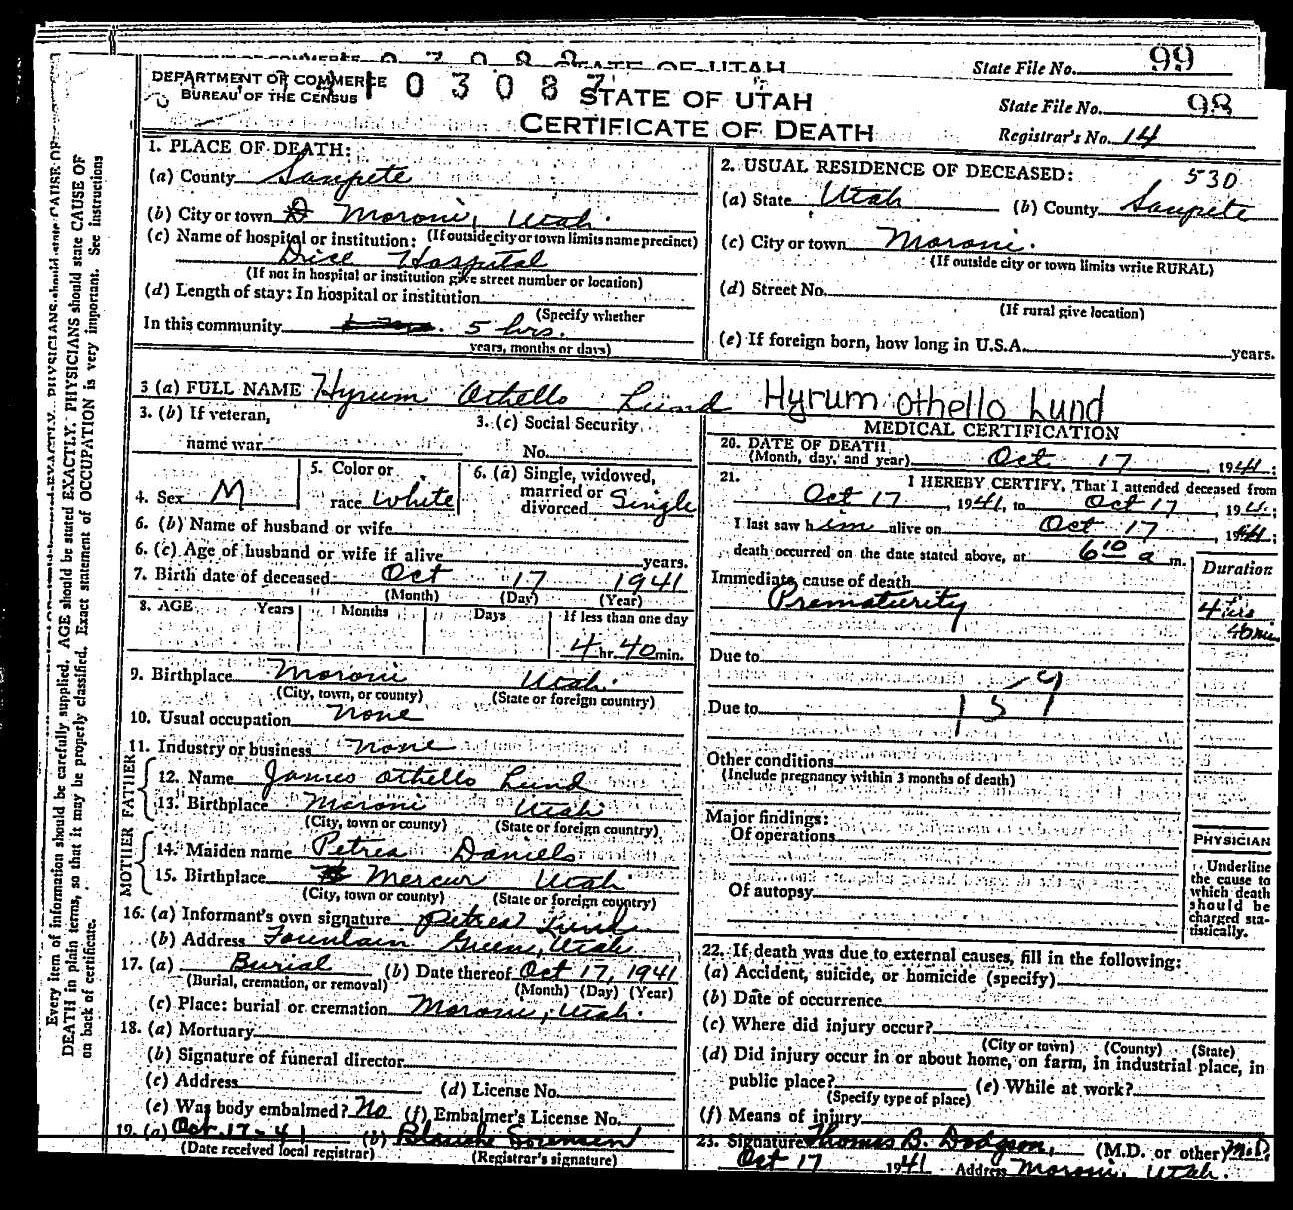 STATE OF UTAH
State File No. 99
DEPARTMENT OF COMMERCE
BUREAU OF THE CENSUS
03087
STATE OF UTAH
CERTIFICATE OF DEATH
State File No. 98
Registrar's No. 14
Every item of information should be carefully supplied. AGE should be stated EXACTLY. PHYSICIANS should state CAUSE OF
DEATH in plain terms, so that it may be properly classified. Exact statement of OCCUPATION is very important. See instructions
on back of certificate.
1. PLACE OF DEATH:
(a) County Sanpete
(b) City or town Moroni, Utah.
(If outside city or town limits name precinct)
(c) Name of hospital or institution:
Dice Hospital
(If not in hospital or institution give street number or location)
(d) Length of stay: In hospital or institution
(Specify whether
In this community 5 hrs.
years, months or days)
2. USUAL RESIDENCE OF DECEASED: 530
(a) State Utah (b) County Sanpete
(c) City or town Moroni.
(If outside city or town limits write RURAL)
(d) Street No.
(If rural give location)
(e) If foreign born, how long in U.S.A. years.
3 (a) FULL NAME Hyrum Othello Lund Hyrum Othello Lund
3. (b) If veteran,
name war
3. (c) Social Security
No.
4. Sex M
5. Color or
race White
6. (a) Single, widowed,
married or
divorced Single
6. (b) Name of husband or wife
6. (c) Age of husband or wife if alive years.
7. Birth date of deceased Oct 17 1941
(Month) (Day) (Year)
8. AGE Years Months Days If less than one day
4 hr. 40 min.
9. Birthplace Moroni Utah.
(City, town, or county) (State or foreign country)
10. Usual occupation none
11. Industry or business none
FATHER
12. Name James Othello Lund
13. Birthplace Moroni Utah
(City, town or county) (State or foreign country)
MOTHER
14. Maiden name Petrea Daniels
15. Birthplace Mercur Utah
(City, town or county) (State or foreign country)
16. (a) Informant's own signature Petrea Lund
(b) Address Fountain Green, Utah
17. (a) Burial (b) Date thereof Oct 17, 1941
(Burial, cremation, or removal) (Month) (Day) (Year)
(c) Place: burial or cremation Moroni, Utah.
18. (a) Mortuary
(b) Signature of funeral director
(c) Address (d) License No.
(e) Was body embalmed? No (f) Embalmer's License No.
19. (a) Oct. 17-41 (b) Blanche Sorensen
(Date received local registrar) (Registrar's signature)
MEDICAL CERTIFICATION
20. DATE OF DEATH
(Month, day, and year) Oct 17, 1941;
21. I HEREBY CERTIFY, That I attended deceased from
Oct 17, 1941, to Oct 17, 1941;
I last saw him alive on Oct 17, 1941;
death occurred on the date stated above, at 6 10 a m.
Duration
Immediate cause of death
Prematurity 4 hrs
40 min
Due to
159
Due to
Other conditions
(Include pregnancy within 3 months of death)
Major findings:
Of operations
Of autopsy
PHYSICIAN
Underline
the cause to
which death
should be
charged sta-
tistically.
22. If death was due to external causes, fill in the following:
(a) Accident, suicide, or homicide (specify)
(b) Date of occurrence
(c) Where did injury occur?
(City or town) (County) (State)
(d) Did injury occur in or about home, on farm, in industrial place, in
public place? (e) While at work?
(Specify type of place)
(f) Means of injury
23. Signature Thomas B. Dodgson, (M.D. or other) M.D.
Oct 17 1941 Address Moroni, Utah.